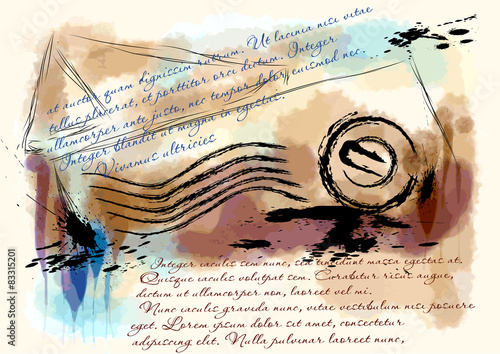 at auctor quam dignissim rutrum. Ut lacinia nisi vitae
tellus placerat, et porttitor orci dictum. Integer
ullamcorper ante justo, nec tempor dolor euismod nec.
Integer blandit ut magna in egestas.
Vivamus ultricies
Integer iaculis sem nunc, sed tincidunt massa egestas at.
Quisque iaculis volutpat sem. Curabitur risus augue,
dictum ut ullamcorper non, laoreet vel mi.
Nunc iaculis gravida nunc, vitae vestibulum nisi posuere
eget. Lorem ipsum dolor sit amet, consectetur
adipiscing elit. Nulla pulvinar laoreet nunc,
83315201